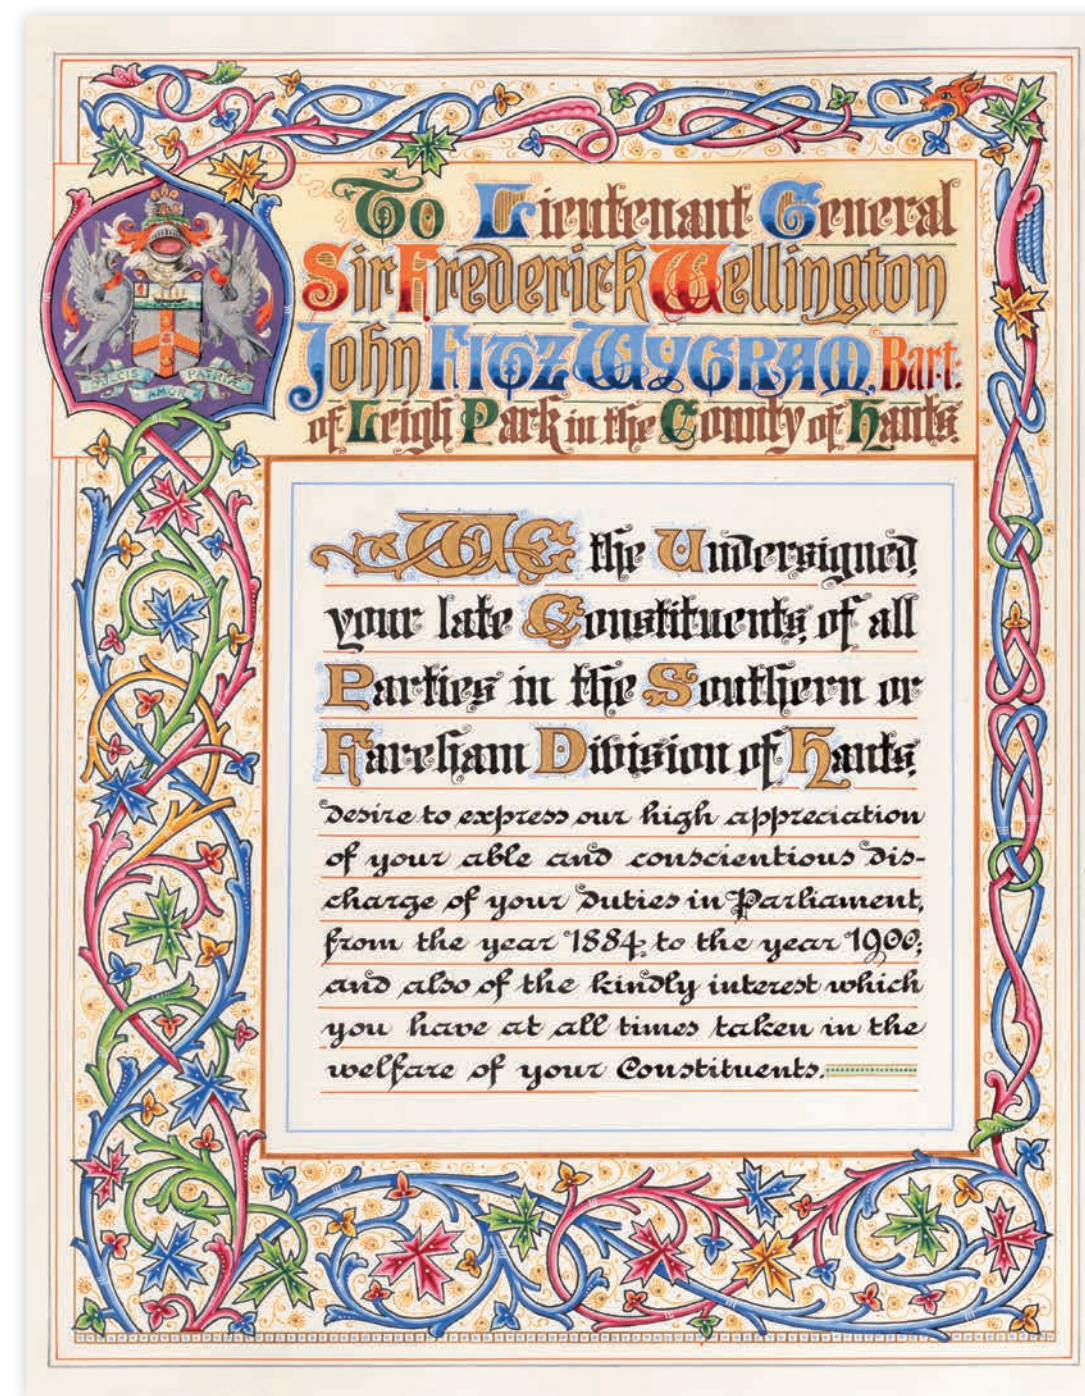 To Lieutenant General
Sir Frederick Wellington
John FitzWygram, Bart:
of Leigh Park in the County of Hants.
DULCIS
AMOR
PATRIÆ
WE the Undersigned,
your late Constituents, of all
Parties in the Southern or
Fareham Division of Hants,
desire to express our high appreciation
of your able and conscientious dis-
charge of your duties in Parliament,
from the year 1884, to the year 1900;
and also of the kindly interest which
you have at all times taken in the
welfare of your Constituents.